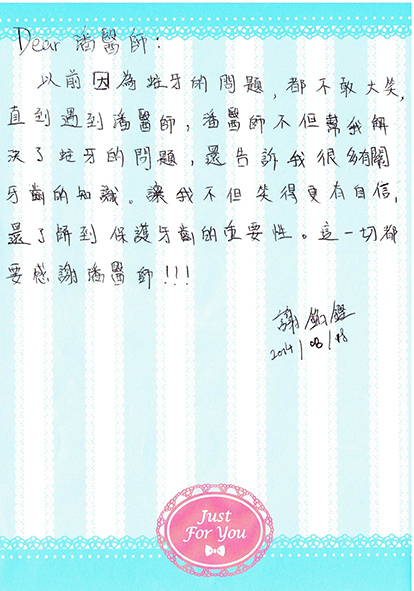 Dear 潘醫師:
以前因為蛀牙的問題,都不敢大笑,
直到遇到潘醫師,潘醫師不但幫我解
決了蛀牙的問題,還告訴我很多有關
牙齒的知識。讓我不但笑得更有自信,
還了解到保護牙齒的重要性。這一切都
要感謝潘醫師!!!
謝
2014/08/18
Just
For You